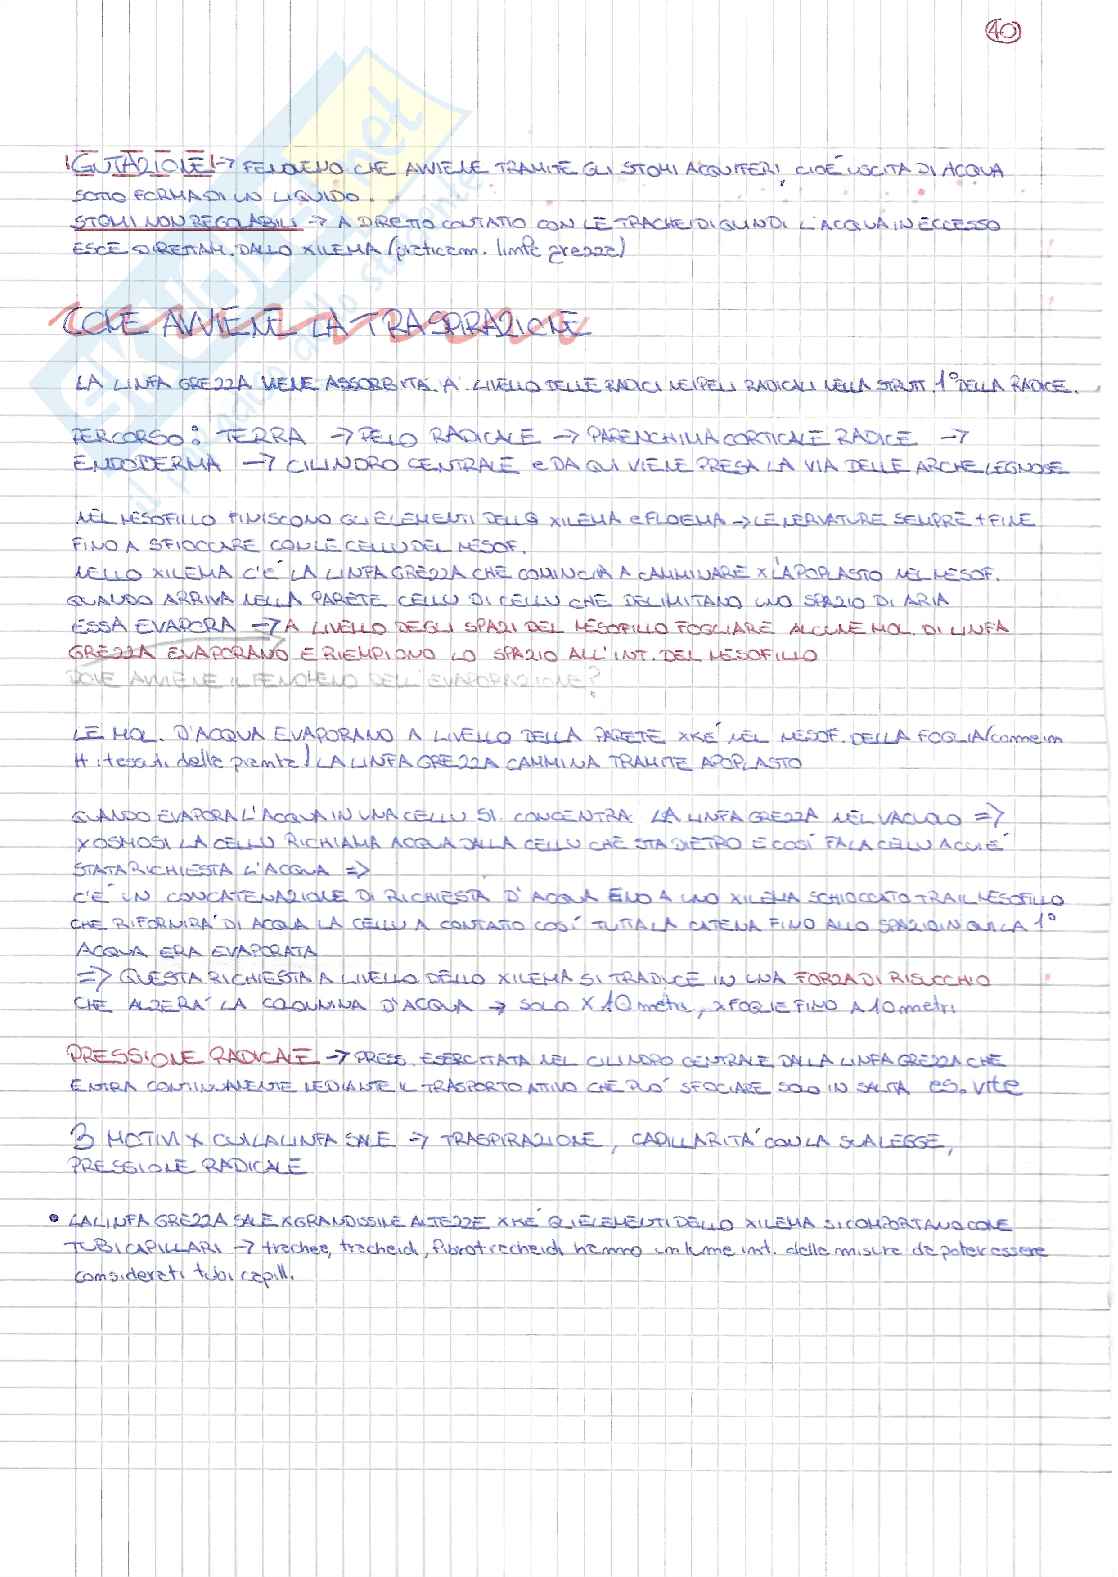 40
GUTAZIONE → FENOMENO CHE AVVIENE TRAMITE GLI STOMI ACQUIFERI, CIOÈ USCITA DI ACQUA
SOTTO FORMA DI UN LIQUIDO.
STOMI NON REGOLABILI → A DIRETTO CONTATTO CON LE TRACHEIDI QUINDI L'ACQUA IN ECCESSO
ESCE DIRETTAM. DALLO XILEMA (praticam. linfa grezza)
COME AVVIENE LA TRASPIRAZIONE
LA LINFA GREZZA VIENE ASSORBITA A LIVELLO DELLE RADICI NEI PELI RADICALI NELLA STRUTT. 1° DELLA RADICE.
PERCORSO: TERRA → PELO RADICALE → PARENCHIMA CORTICALE RADICE →
ENDODERMA → CILINDRO CENTRALE e DA QUI VIENE PRESA LA VIA DELLE ARCHE LEGNOSE
NEL MESOFILLO FINISCONO GLI ELEMENTI DELLO XILEMA e FLOEMA → LE NERVATURE SEMPRE + FINE
FINO A SFIOCCARE CON LE CELLU DEL MESOF.
NELLO XILEMA C'È LA LINFA GREZZA CHE COMINCIA A CAMMINARE X L'APOPLASTO NEL MESOF.
QUANDO ARRIVA NELLA PARETE CELLU DI CELLU CHE DELIMITANO UNO SPAZIO DI ARIA
ESSA EVAPORA → A LIVELLO DEGLI SPAZI DEL MESOFILLO FOGLIARE ALCUNE MOL. DI LINFA
GREZZA EVAPORANO E RIEMPIONO LO SPAZIO ALL'INT. DEL MESOFILLO
DOVE AVVIENE IL FENOMENO DELL'EVAPORAZIONE?
LE MOL. D'ACQUA EVAPORANO A LIVELLO DELLA PARETE XKÈ NEL MESOF. DELLA FOGLIA (come in
tt i tessuti delle piante) LA LINFA GREZZA CAMMINA TRAMITE APOPLASTO
QUANDO EVAPORA L'ACQUA IN UNA CELLU SI CONCENTRA LA LINFA GREZZA NEL VACUOLO ⇒
X OSMOSI LA CELLU RICHIAMA ACQUA DALLA CELLU CHE STA DIETRO E COSÌ FA LA CELLU A CUI È
STATA RICHIESTA L'ACQUA ⇒
C'È UN CONCATENAZIONE DI RICHIESTA D'ACQUA FINO A UNO XILEMA SCHIOCCATO TRA IL MESOFILLO
CHE RIFORNIRÀ DI ACQUA LA CELLU A CONTATTO COSÌ TUTTA LA CATENA FINO ALLO SPAZIO IN CUI LA 1°
ACQUA ERA EVAPORATA
⇒ QUESTA RICHIESTA A LIVELLO DELLO XILEMA SI TRADUCE IN UNA FORZA DI RISUCCHIO
CHE ALZERÀ LA COLONNINA D'ACQUA → SOLO X 10 metri, X FOGLIE FINO A 10 metri
PRESSIONE RADICALE → PRESS. ESERCITATA NEL CILINDRO CENTRALE DALLA LINFA GREZZA CHE
ENTRA CONTINUAMENTE MEDIANTE IL TRASPORTO ATTIVO CHE PUÒ SFOCIARE SOLO IN SALITA es. vite
3 MOTIVI X CUI LA LINFA SALE → TRASPIRAZIONE, CAPILLARITÀ CON LA SUA LEGGE,
PRESSIONE RADICALE
• LA LINFA GREZZA SALE X GRANDISSIME ALTEZZE XKÈ GLI ELEMENTI DELLO XILEMA SI COMPORTANO COME
TUBI CAPILLARI → trachee, tracheidi, fibrotracheidi hanno un lume int. delle misure da poter essere
considerati tubi capill.